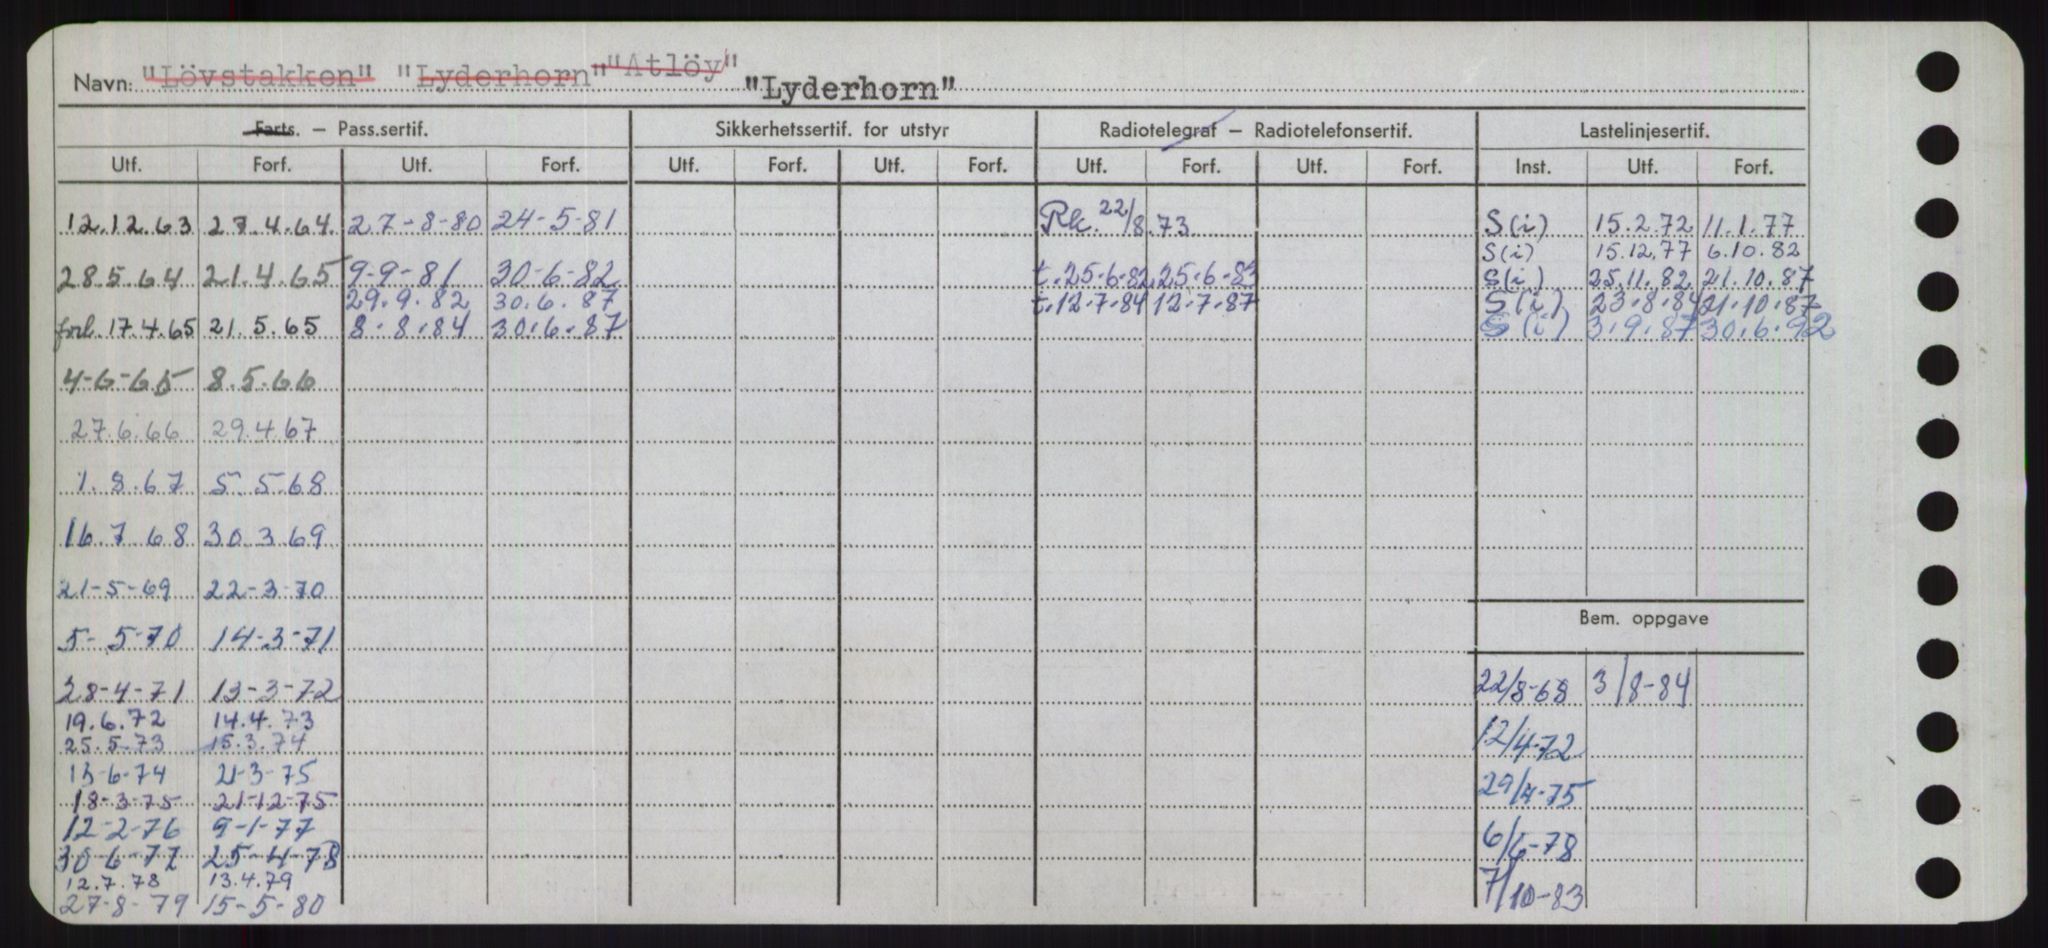 Navn: "Lövstakken" "Lyderhorn" "Atlöy" "Lyderhorn"
Farts. – Pass.sertif. Sikkerhetssertif. for utstyr Radiotelegraf – Radiotelefonsertif. Lastelinjesertif.
Utf. Forf. Utf. Forf. Utf. Forf. Utf. Forf. Utf. Forf. Utf. Forf. Inst. Utf. Forf.
12.12.63 27.4.64. 27-8-80 24-5-81 Rk. 22/8.73. S(i) 15.2.72 11.1.77
S(i) 15.12.77 6.10.82
28.5.64 21.4.65 9-9-81 30-6-82 t.25-6-82 25-6-83 S(i) 25.11.82 21.10.87
29.9.82 30.6.87 t.12-7-84 12-7-87 S(i) 23-8-84 21-10-87
forl. 17.4.65 21.5.65 8-8-84 30-6-87 S(i) 3.9.87 30.6.92
4-6-65 8.5.66
27.6.66 29.4.67
1.8.67 5.5.68
16.7.68 30.3.69
21-5-69 22-3-70
Bem. oppgave
5-5-70 14-3-71
28-4-71 13-3-72 22/8-68 3/8-84
19.6.72 14.4.73
25.5.73 15.3.74 12/4-72
13-6-74 21-3-75
18-3-75 21-12-75 29/4-75
12-2-76 9-1-77
30-6-77 25-4-78 6/6-78
12.7.78 13.4.79
27-8-79 15-5-80 7/10-83